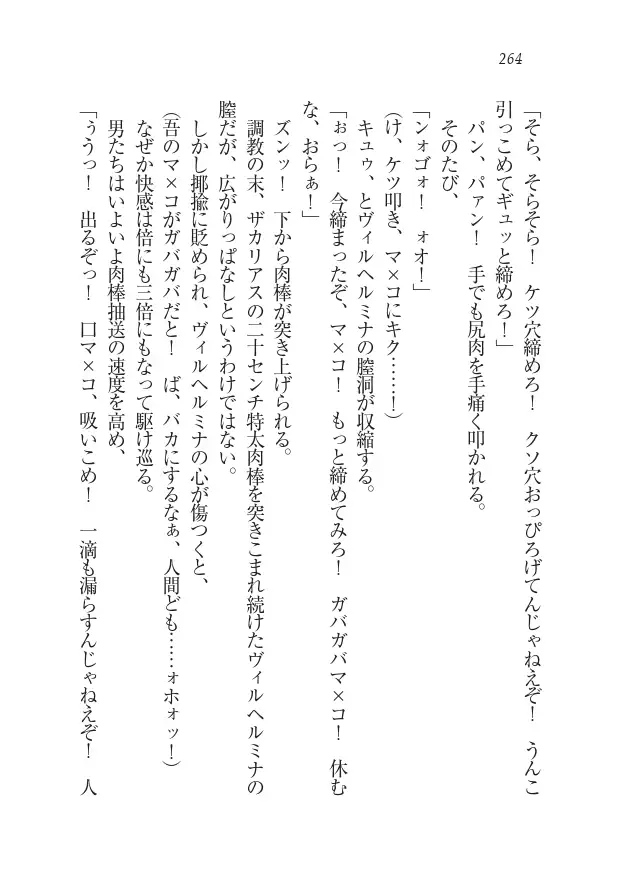 264
「そら、そらそら！　ケツ穴締めろ！　クソ穴おっぴろげてんじゃねえぞ！　うんこ
引っこめてギュッと締めろ！」
　パン、パァン！　手でも尻肉を手痛く叩かれる。
　そのたび、
「ンォゴォ！　ォオ！」
（け、ケツ叩き、マ×コにキク……！）
　キュゥ、とヴィルヘルミナの膣洞が収縮する。
「ぉっ！　今締まったぞ、マ×コ！　もっと締めてみろ！　ガバガバマ×コ！　休む
な、おらぁ！」
　ズンッ！　下から肉棒が突き上げられる。
　調教の末、ザカリアスの二十センチ特太肉棒を突きこまれ続けたヴィルヘルミナの
膣だが、広がりっぱなしというわけではない。
　しかし揶揄に貶められ、ヴィルヘルミナの心が傷つくと、
（吾のマ×コがガバガバだと！　ば、バカにするなぁ、人間ども……ォホォッ！）
　なぜか快感は倍にも三倍にもなって駆け巡る。
　男たちはいよいよ肉棒抽送の速度を高め、
「ぅうっ！　出るぞっ！　口マ×コ、吸いこめ！　一滴も漏らすんじゃねえぞ！　人